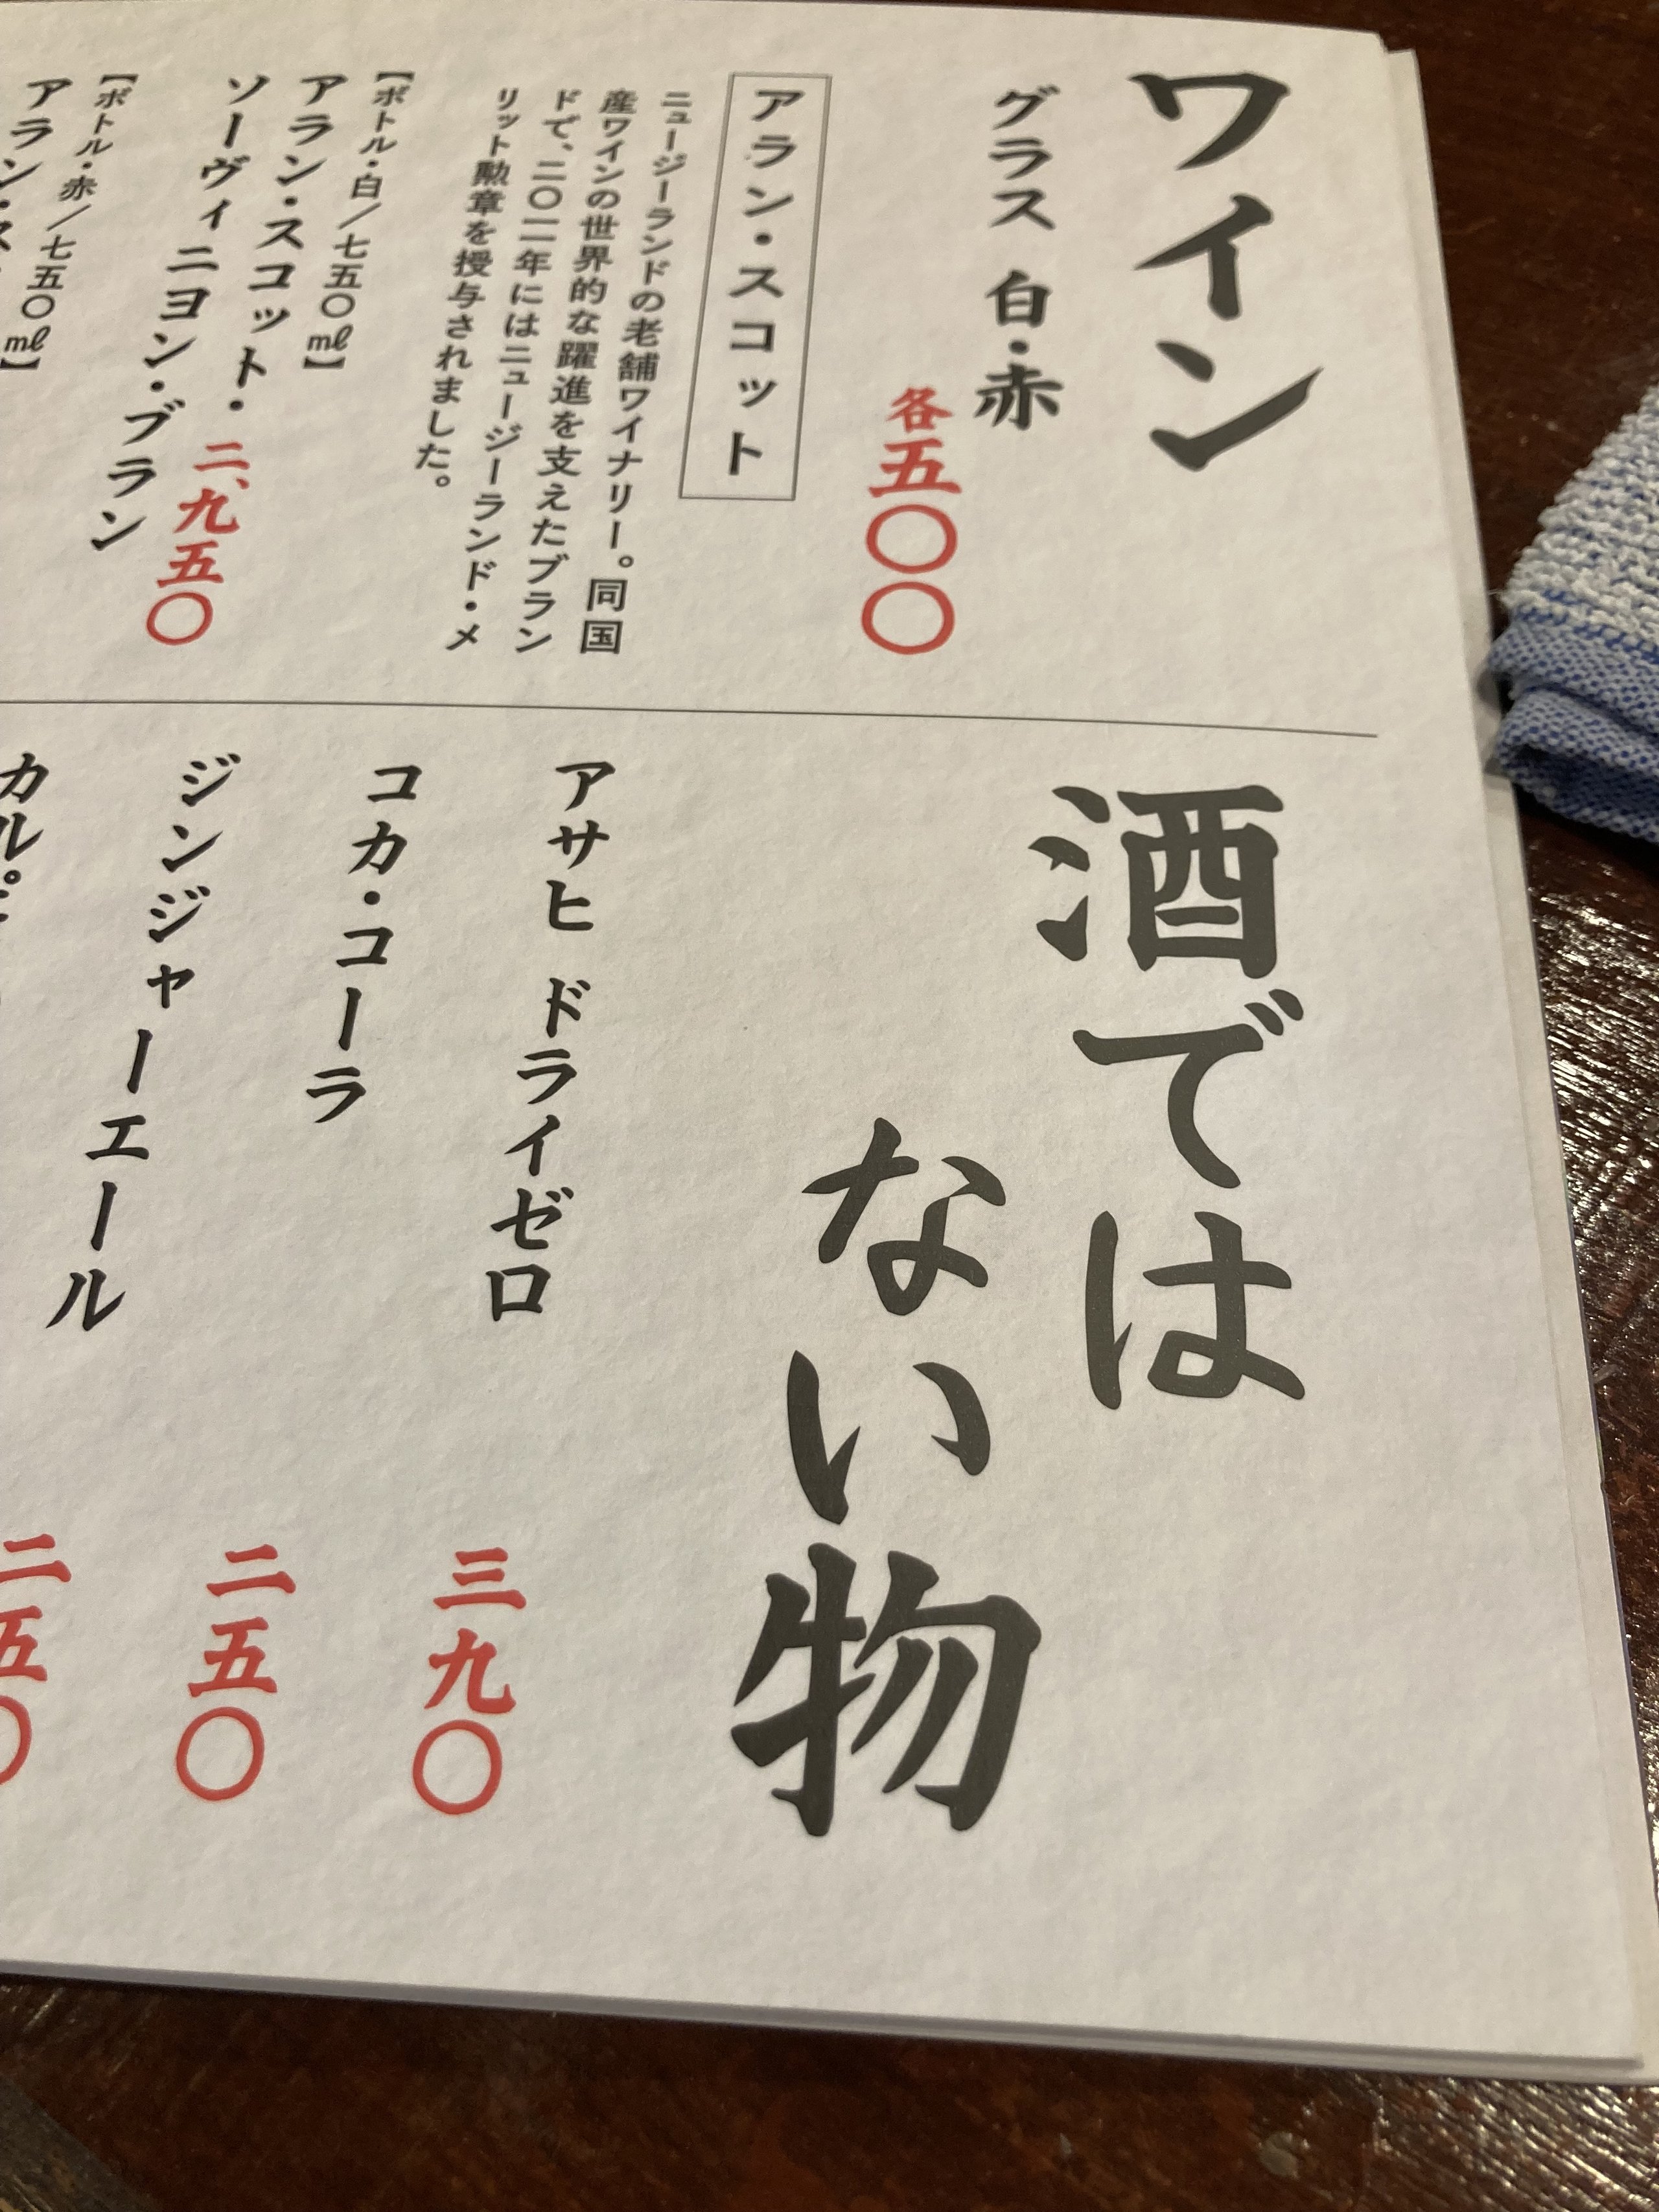 ワイン
グラス 白・赤
各五〇〇
アラン・スコット
ニュージーランドの老舗ワイナリー。同国
産ワインの世界的な躍進を支えたブラン
ドで、二〇一一年にはニュージーランド・メ
リット勲章を授与されました。
【ボトル・白/七五〇㎖】
アラン・スコット・
ソーヴィニヨン・ブラン
二、九五〇
【ボトル・赤/七五〇㎖】
アラン・ス
酒では
ない物
アサヒ ドライゼロ
三九〇
コカ・コーラ
二五〇
ジンジャーエール
二五〇
カルピ